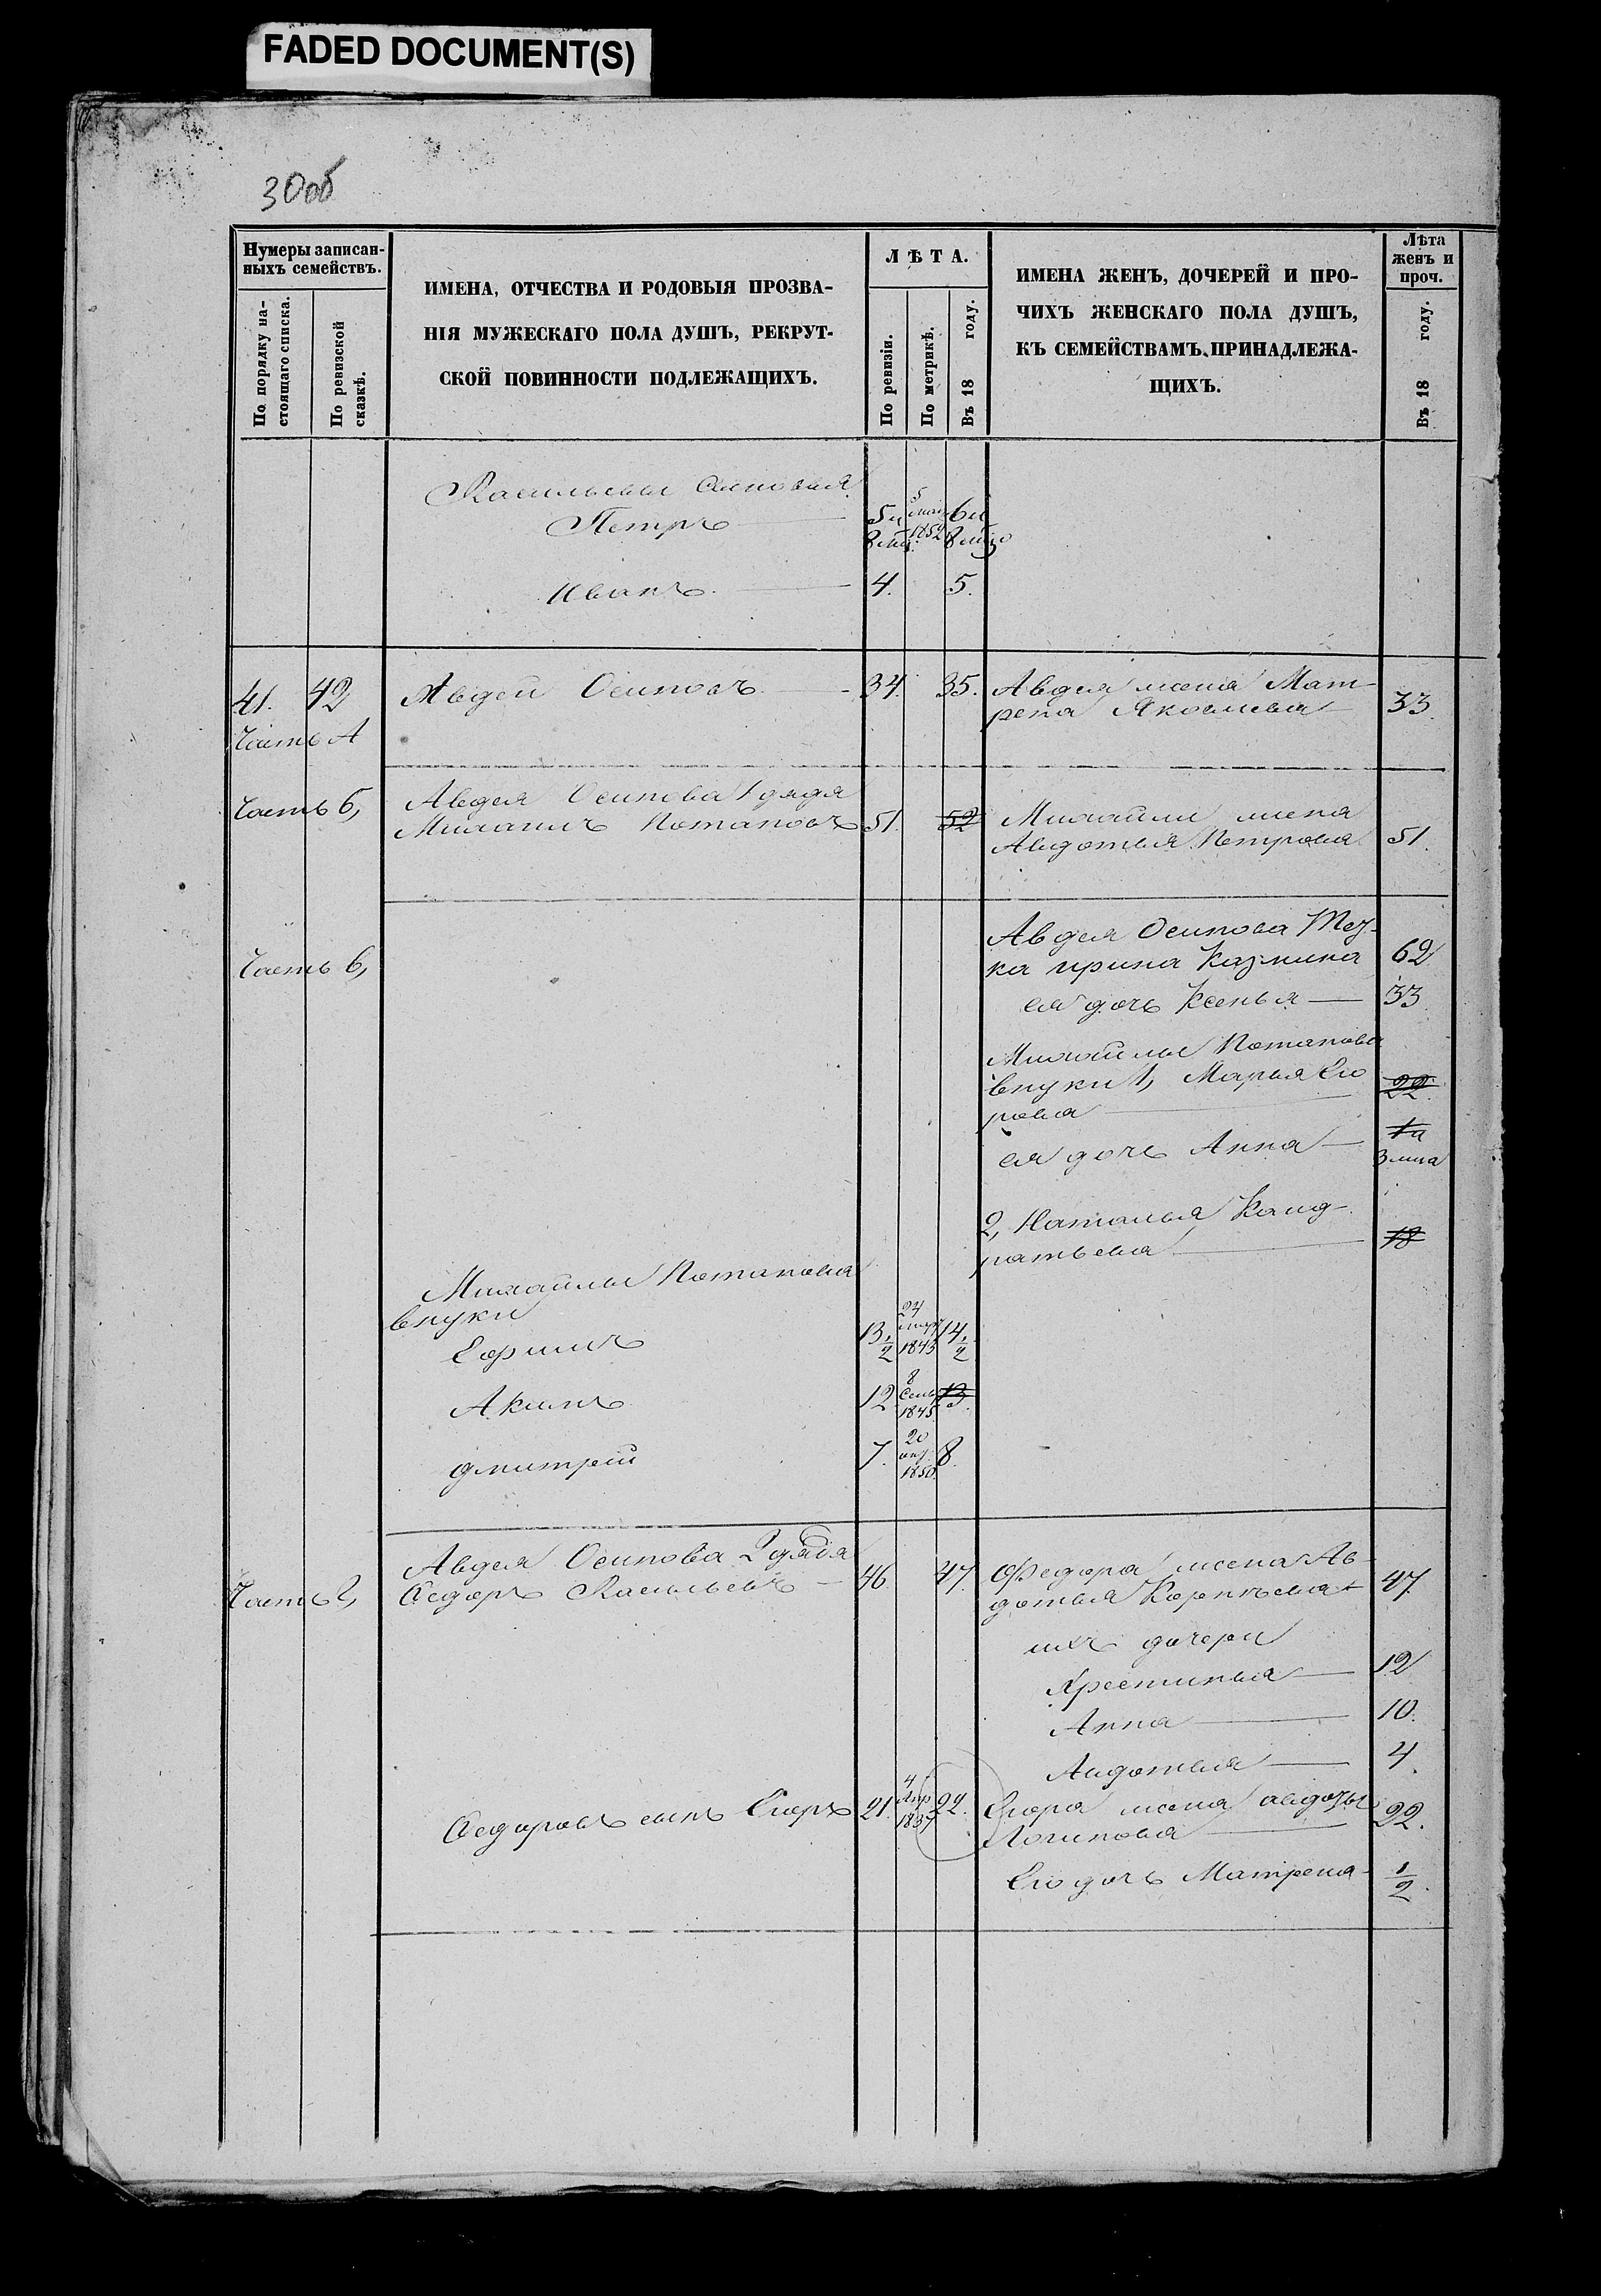 FADED DOCUMENT(S)
30об
Нумеры записан-
ныхъ семействъ.
По порядку на-
стоящаго списка.
По ревизской
сказкѣ.
ИМЕНА, ОТЧЕСТВА И РОДОВЫЯ ПРОЗВА-
НІЯ МУЖЕСКАГО ПОЛА ДУШЪ, РЕКРУТ-
СКОЙ ПОВИННОСТИ ПОДЛЕЖАЩИХЪ.
ЛѢТА.
По ревизіи.
По метрикѣ.
Въ 18 году.
ИМЕНА ЖЕНЪ, ДОЧЕРЕЙ И ПРО-
ЧИХЪ ЖЕНСКАГО ПОЛА ДУШЪ,
КЪ СЕМЕЙСТВАМЪ ПРИНАДЛЕЖА-
ЩИХЪ.
Лѣта
женъ и
проч.
Въ 18 году.
Васильевы сыновья
Петръ 5 и 8 1852 6 и 8
Иванъ 4. 5.
41. 42 Авдей Осиповъ 34. 35. Авдея жена Мат-
рена Яковлева 33
Часть А
Часть б, Авдея Осипова 1 дядя
Михаилъ Потаповъ 51. 52 Михайлы жена
Авдотья Петрова 51.
Часть в, Авдея Осипова Тет-
ка ирина Казмина 62
ея дочь Ксенья 33
Михайлы Потапова
внуки 1, Марья Его
рова 22.
ея дочь Анна 1 и
3 м-ца
2, Наталья Конд-
ратьева 18
Михайлы Потапова
внуки
Ефимъ 13 1/2 24 мар 1843 14 1/2
Акимъ 12 8 Сен 1845 13.
дмитрей 7. 20 1850. 8.
Часть г, Авдея Осипова 2 дядя
Федоръ Васильевъ 46. 47. Федора жена Ав-
дотья Корнѣева 47
ихъ дочери
Хрестинья 12
Анна 10.
Авдотья 4.
Федоровъ сынъ Егоръ 21. 4 Апр 1837 22. Егора жена авдотья
Логинова 22.
Его дочь Матрена 1/2.